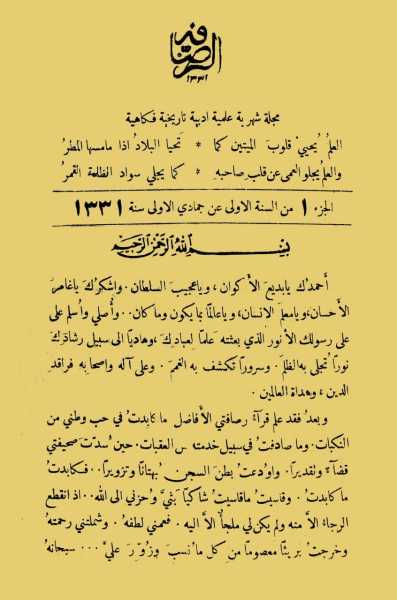 الرصافة
١٣٣١
مجلة شهرية علمية ادبية تاريخية فكاهية
العلمُ يُحييْ قلوبَ الميتين كما * تَحيا البلادُ اذا مامسها المطرُ
والعلمُ يجلو العمى عن قلبِ صاحبهِ * كما يجلي سواد الظلمة القمرُ
الجزء ١ من السنة الاولى عن جمادي الاولى سنة ١٣٣١
بسم الله الرحمن الرحيم
أحمدُك يابديع الأكوان ، وياعجيب السلطان . واشكرُكَ ياغامرَ
الأحسان، ويامعلمَ الانسان، وياعالمًا بما يكون وماكان . . وأُصلي وأُسلم على
على رسولك الأنور الذي بعثته علمًا لعبادِكَ ، وهاديًا الى سبيل رشادِكَ
نورًا تُجلى به الظلمَ . وسرورًا تكشف به الغممَ . وعلى آله واصحابه فراقد
الدين ، وهداة العالمين .
وبعدُ فقد علم قرآءُ رصافتي الأفاضل ماكابدتُ في حب وطني من
النكبات . وما صادفتُ في سبيل خدمته من العقبات . حين سُدّتَ صحيفتي
قضآءً وتقديرًا . واودعتُ بطنَ السجن بُهتانًا وتزويرًا . . فكابدتُ
ماكابدتُ . وقاسيتُ ماقاسيتُ شاكيًا بثيْ وحزني الى الله . . اذ انقطع
الرجاءُ الاَّ منه ولم يكن لي ملجأ الاَّ اليه . فعمني لطفهُ . وشملتني رحمتهُ
وخرجتُ بريئًا معصومًا من كل مانُسبَ وزُوّرَ عليَّ . . . سبحانهُ